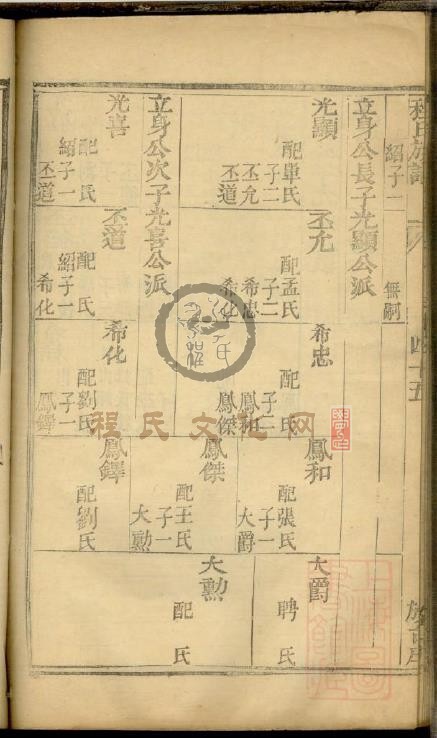 程氏族譜
四十五
紹子一
無嗣
立身公長子光顯公派
光顯
配單氏
子二
丕允
丕道
丕允
配孟氏
子二
希忠
希化
希忠
配 氏
子二
鳳和
鳳傑
鳳和
配張氏
子一
大爵
大爵
聘 氏
鳳傑
配王氏
子一
大勲
大勲
配 氏
立身公次子光喜公派
光喜
配 氏
紹子一
丕道
丕道
配 氏
紹子一
希化
希化
配劉氏
子一
鳳鐸
鳳鐸
配劉氏
程氏文化网